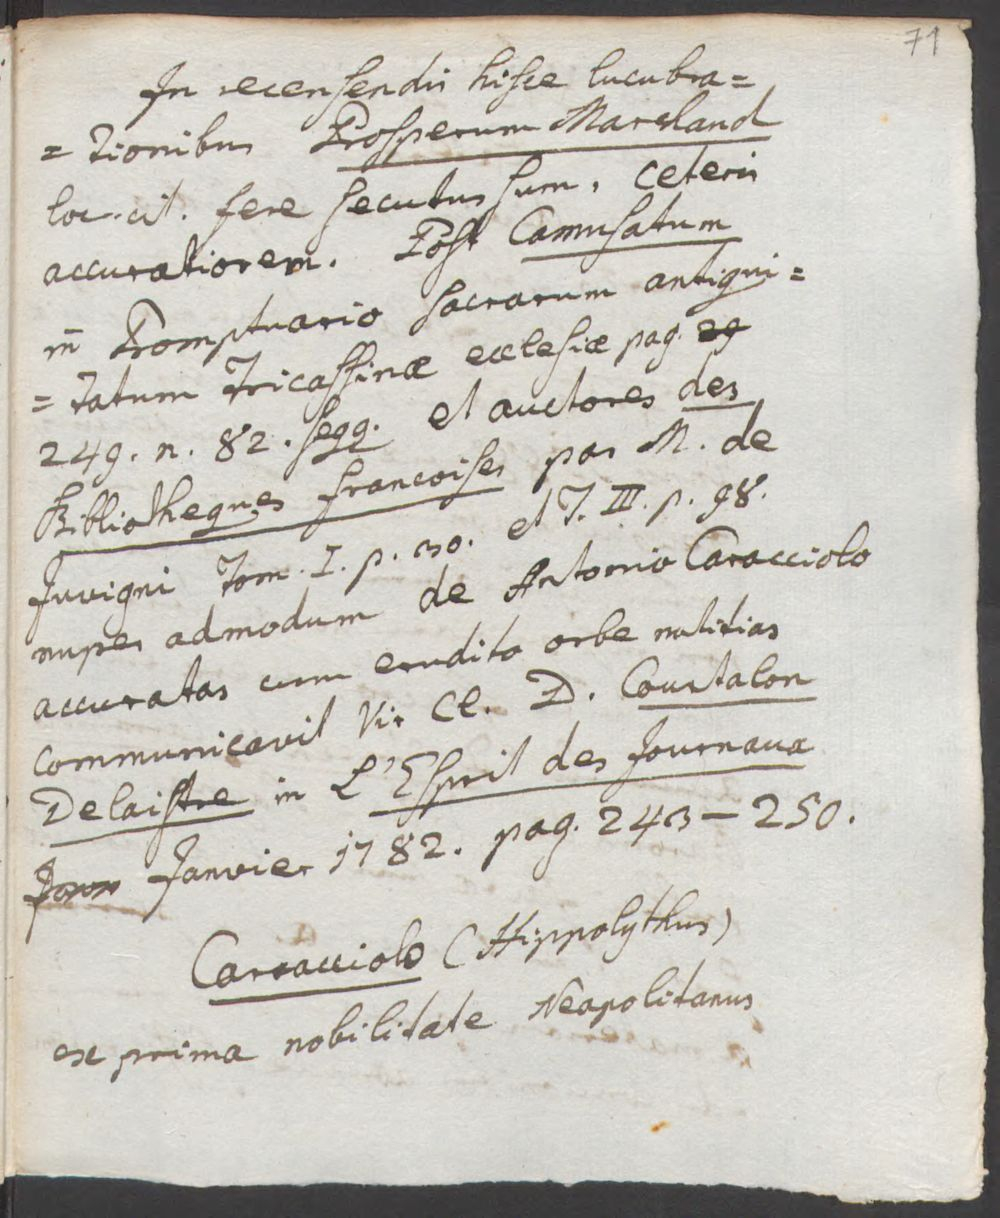 71
In recensendis hisce lucubra=
=tionibus Prosperum Marchand
loc. cit. fere secutus sum, ceteris
accuratiorem. Post Camusatum
in Promptuario sacrarum antiqui=
=tatum Tricassinæ ecclesiæ pag.
249. n. 82. seqq. et auctores des
Bibliotheques francoises par M. de
Juvigni Tom. I. p. 30. et T. III. p. 98.
nuper admodum de Antonio Caracciolo
accuratas cum erudito orbe notitias
communicavit Vir Cl. D. Courtalon
Delaistre in L'Esprit des Journaux
Janvier 1782. pag. 243–250.
Carracciolo (Hippolythus)
ex prima nobilitate Neapolitanus